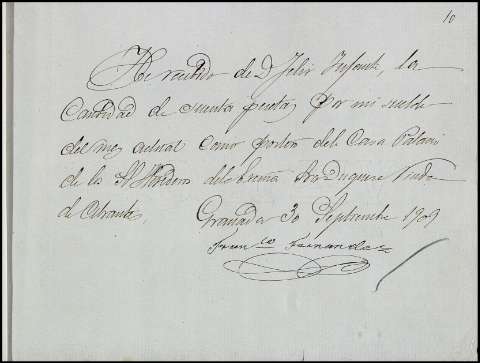 10
He recibido de D. Felix Infante, la
Cantidad de sesenta pesetas por mi sueldo
del mes actual como portero dela Casa Palacio
de los Herederos dela Excma Sra Duquesa Viuda
de Abrantes
Granada 30 Septiembre 1909
Franco Fernandez